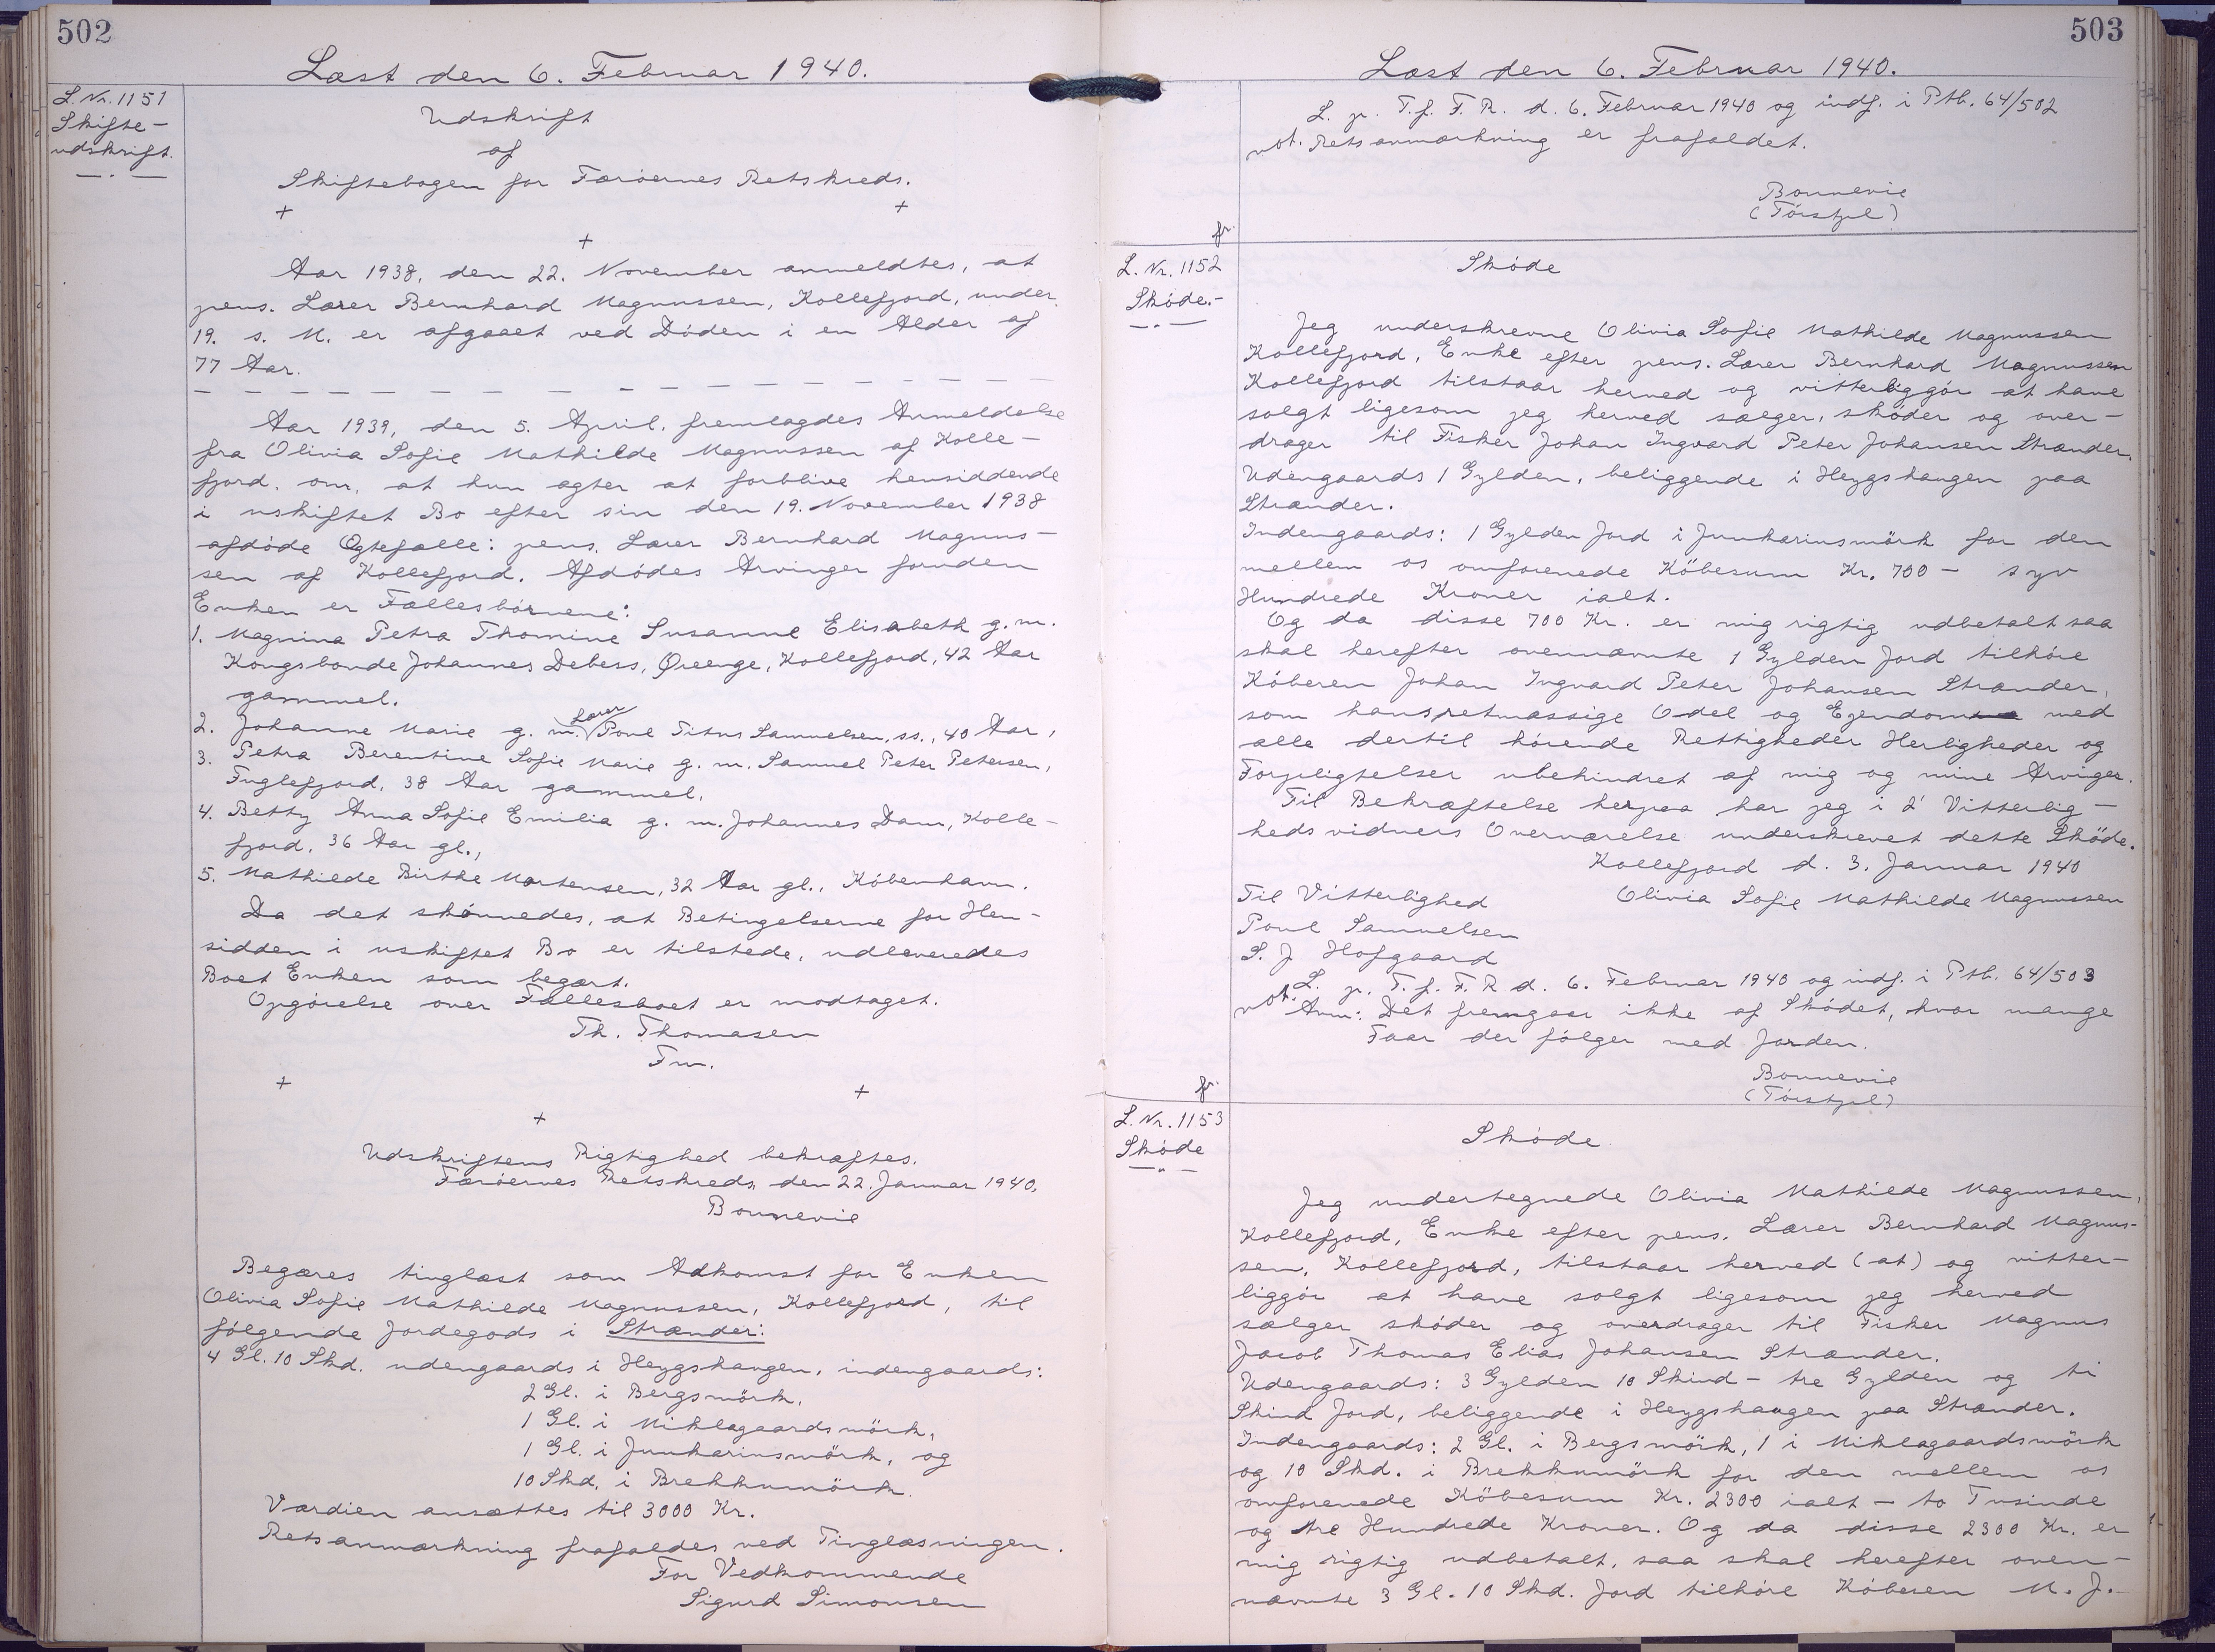 502
Læst den 6. Februar 1940.
L. Nr. 1151
Skifte-
udskrift.
Udskrift
af
Skiftebogen for Færöernes Retskreds.
+ +
+
Aar 1938, den 22. November anmeldtes, at
pens. Lærer Bernhard Magnussen, Kollefjord, under
19. s. M. er afgaaet ved Döden i en Alder af
77 Aar.
Aar 1939, den 5. April, fremlagdes Anmeldelse
fra Olivia Sofie Mathilde Magnussen af Kolle-
fjord, om, at hun agter at forblive hensiddende
i uskiftet Bo efter sin den 19. November 1938
afdöde Ægtefælle: pens. Lærer Bernhard Magnus-
sen af Kollefjord. Afdödes Arvinger foruden
Enken er Fællesbörnene:
1. Magnina Petra Thomine Susanne Elisabeth g. m.
Kongsbonde Johannes Debess, Øreenge, Kollefjord, 42 Aar
gammel.
2. Johanne Marie g. m. Lærer Poul Titus Samuelsen, ss., 40 Aar,
3. Petra Berentine Sofie Marie g. m. Samuel Peter Petersen,
Fuglefjord, 38 Aar gammel,
4. Betty Anna Sofie Emilia g. m. Johannes Dam, Kolle-
fjord, 36 Aar gl.,
5. Mathilde Birthe Mortensen, 32 Aar gl., Köbenhavn.
Da det skönnedes, at Betingelserne for Hen-
sidden i uskiftet Bo er tilstede, udleveredes
Boet Enken som begært.
Opgörelse over Fællesboet er modtaget.
Th. Thomasen
Fm.
+ +
+
Udskriftens Rigtighed bekræftes.
Færöernes Retskreds, den 22. Januar 1940.
Bonnevie
Begæres tinglæst som Adkomst for Enken
Olivia Sofie Mathilde Magnussen, Kollefjord, til
fölgende Jordegods i Strænder:
4 Gl. 10 Skd. udengaards i Heygshaugen, indengaards:
2 Gl. i Bergsmörk,
1 Gl. i Miklagaardsmörk,
1 Gl. i Junkarinsmörk, og
10 Skd. i Brekkumörk.
Værdien ansættes til 3000 Kr.
Retsanmærkning frafaldes ved Tinglæsningen.
For Vedkommende
Sigurd Simonsen
503
Læst den 6. Februar 1940.
L. p. T. f. F. R. d. 6. Februar 1940 og indf. i Ptb. 64/502
not. Retsanmærkning er frafaldet.
Bonnevie
fr.
L. Nr. 1152
Sköde.-
Sköde
Jeg underskrevne Olivia Sofie Mathilde Magnussen
Kollefjord, Enke efter pens. Lærer Bernhard Magnussen
Kollefjord tilstaar herved og vitterliggör at have
solgt ligesom jeg herved sælger, sköder og over-
drager til Fisker Johan Ingvard Peter Johansen Strænder.
Udengaards 1 Gylden, beliggende i Heygshaugen paa
Strænder.
Indengaards: 1 Gylden Jord i Junkarinsmörk for den
mellem os omforenede Köbesum Kr. 700 - syv
Hundrede Kroner ialt.
Og da disse 700 Kr. er mig rigtig udbetalt saa
skal herefter ovennævnte 1 Gylden Jord tilhöre
Köberen Johan Ingvard Peter Johansen Strænder,
som hans retmæssige Odel og Ejendom med
alle dertil hörende Rettigheder Herligheder og
Forpligtelser ubehindret af mig og mine Arvinger.
Til Bekræftelse herpaa har jeg i 2' Vitterlig-
hedsvidners Overværelse underskrevet dette Sköde.
Kollefjord d. 3. Januar 1940
Til Vitterlighed Olivia Sofie Mathilde Magnussen
Poul Samuelsen
S. J Hofgaard
L. p. T. f. F. R d. 6. Februar 1940 og indf. i Ptb. 64/503
not. Anm: Det fremgaar ikke af Sködet, hvor mange
Faar der fölger med Jorden.
Bonnevie
fr.
L. Nr. 1153
Sköde
Sköde
Jeg undertegnede Olivia Mathilde Magnussen,
Kollefjord, Enke efter pens. Lærer Bernhard Magnus-
sen, Kollefjord, tilstaar herved (at) og vitter-
liggör at have solgt ligesom jeg herved
sælger sköder og overdrager til Fisker Magnus
Jacob Thomas Elias Johansen Strænder.
Udengaards: 3 Gylden 10 Skind - tre Gylden og ti
Skind Jord, beliggende i Heygshaugen paa Strænder.
Indengaards: 2 Gl. i Bergsmörk, 1 i Miklagaardsmörk
og 10 Skd. i Brekkumörk for den mellem os
omforenede Köbesum Kr. 2300 ialt - to Tusinde
og tre Hundrede Kroner. Og da disse 2300 Kr. er
mig rigtig udbetalt, saa skal herefter oven-
nævnte 3 Gl. 10 Skd. Jord tilhöre Köberen M. J.-